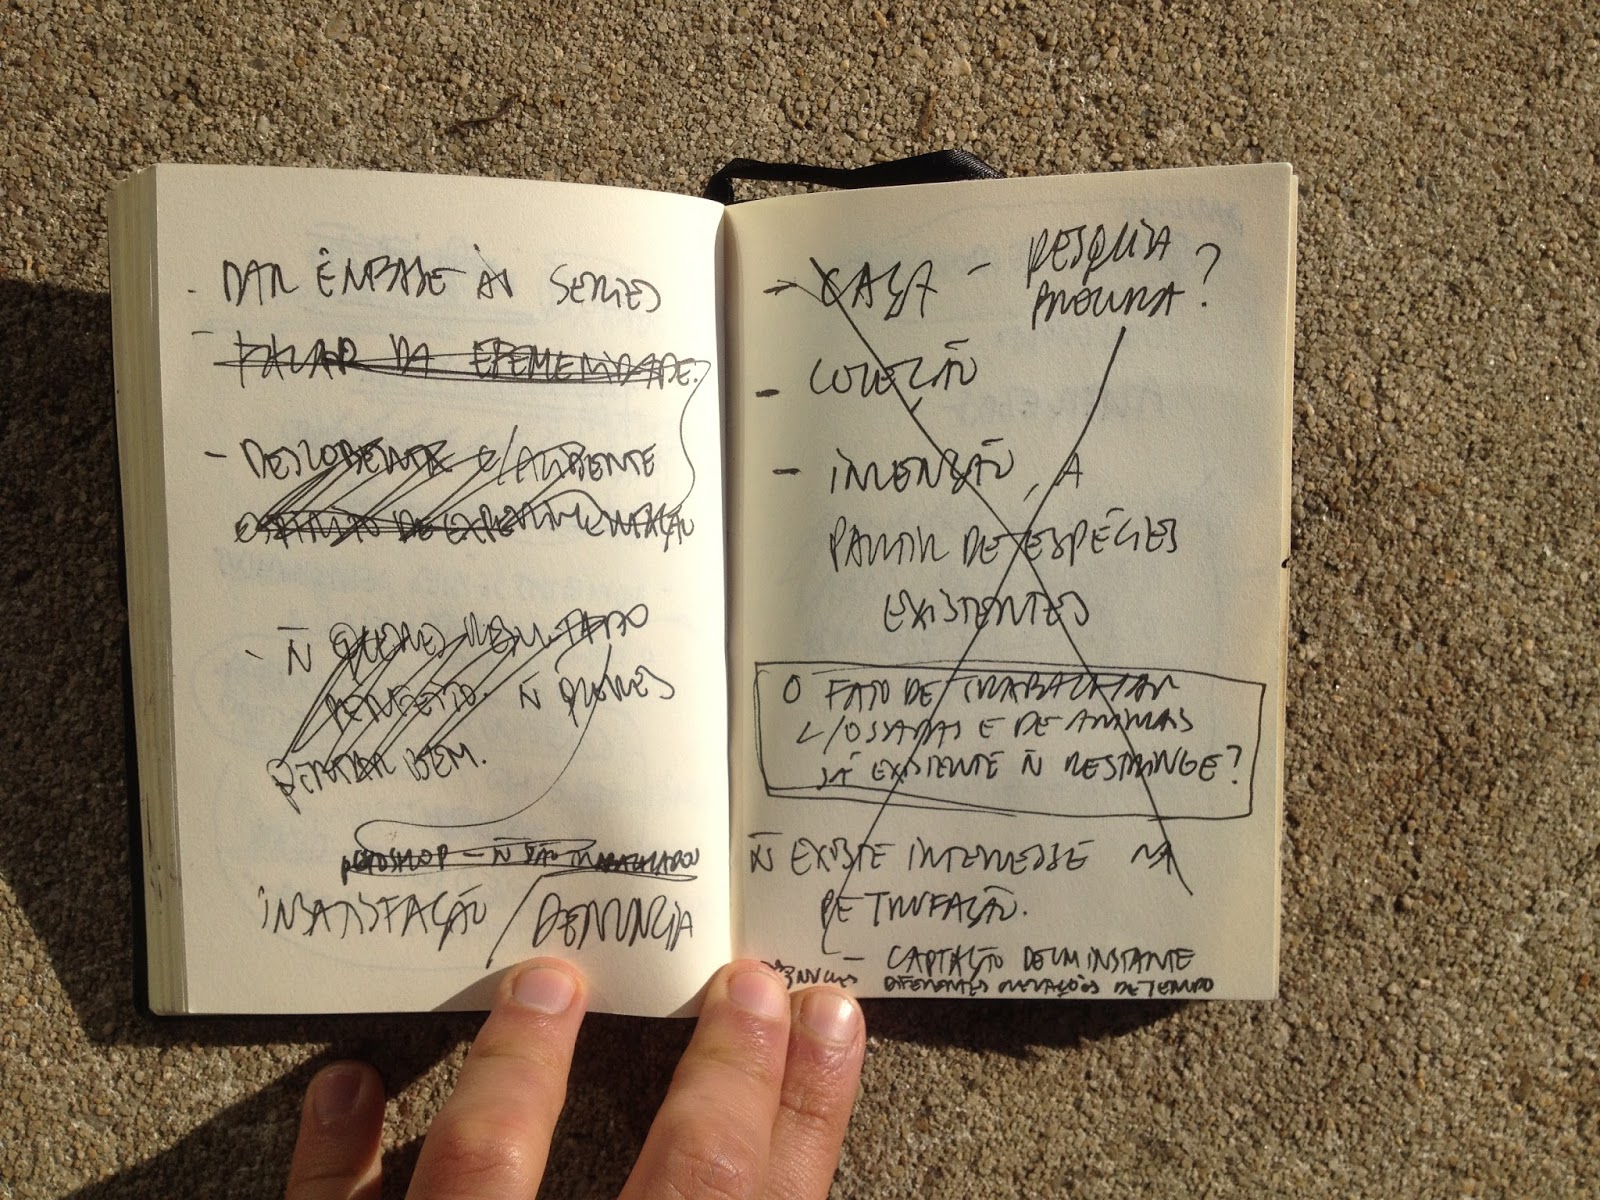 - DAR ÊNFASE ÀS SERIES
- FALAR DA EFEMERIDADE.
- DESCOBERTA C/ AMBIENTE
DE EXPERIMENTAÇÃO
- Ñ QUERES RESULTADO
PERFEITO. Ñ QUERES
PINTAR BEM.
PHOTOSHOP - Ñ SÃO TRABALHADOS
INSATISFAÇÃO / DENUNCIA
- CAÇA - PESQUISA
PROCURA?
- COLEÇÃO
- INVENÇÃO, A
PARTIR DE ESPÉCIES
EXISTENTES
O FATO DE TRABALHAR
C/ OSSADAS E DE ANIMAIS
JÁ EXISTENTE Ñ RESTRINGE?
Ñ EXISTE INTERESSE NA
PETRIFAÇÃO.
- CAPTAÇÃO DE UM INSTANTE
DIFERENTES RELAÇÕES DE TEMPO